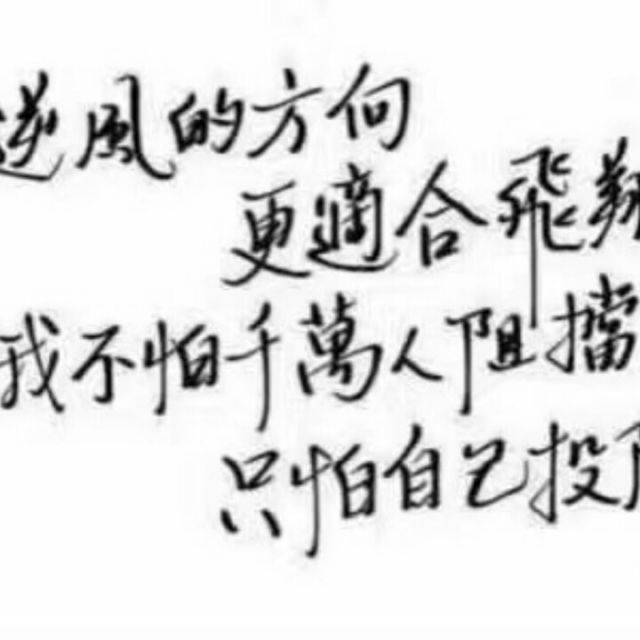 逆風的方向
更適合飛翔
我不怕千萬人阻擋
只怕自己投